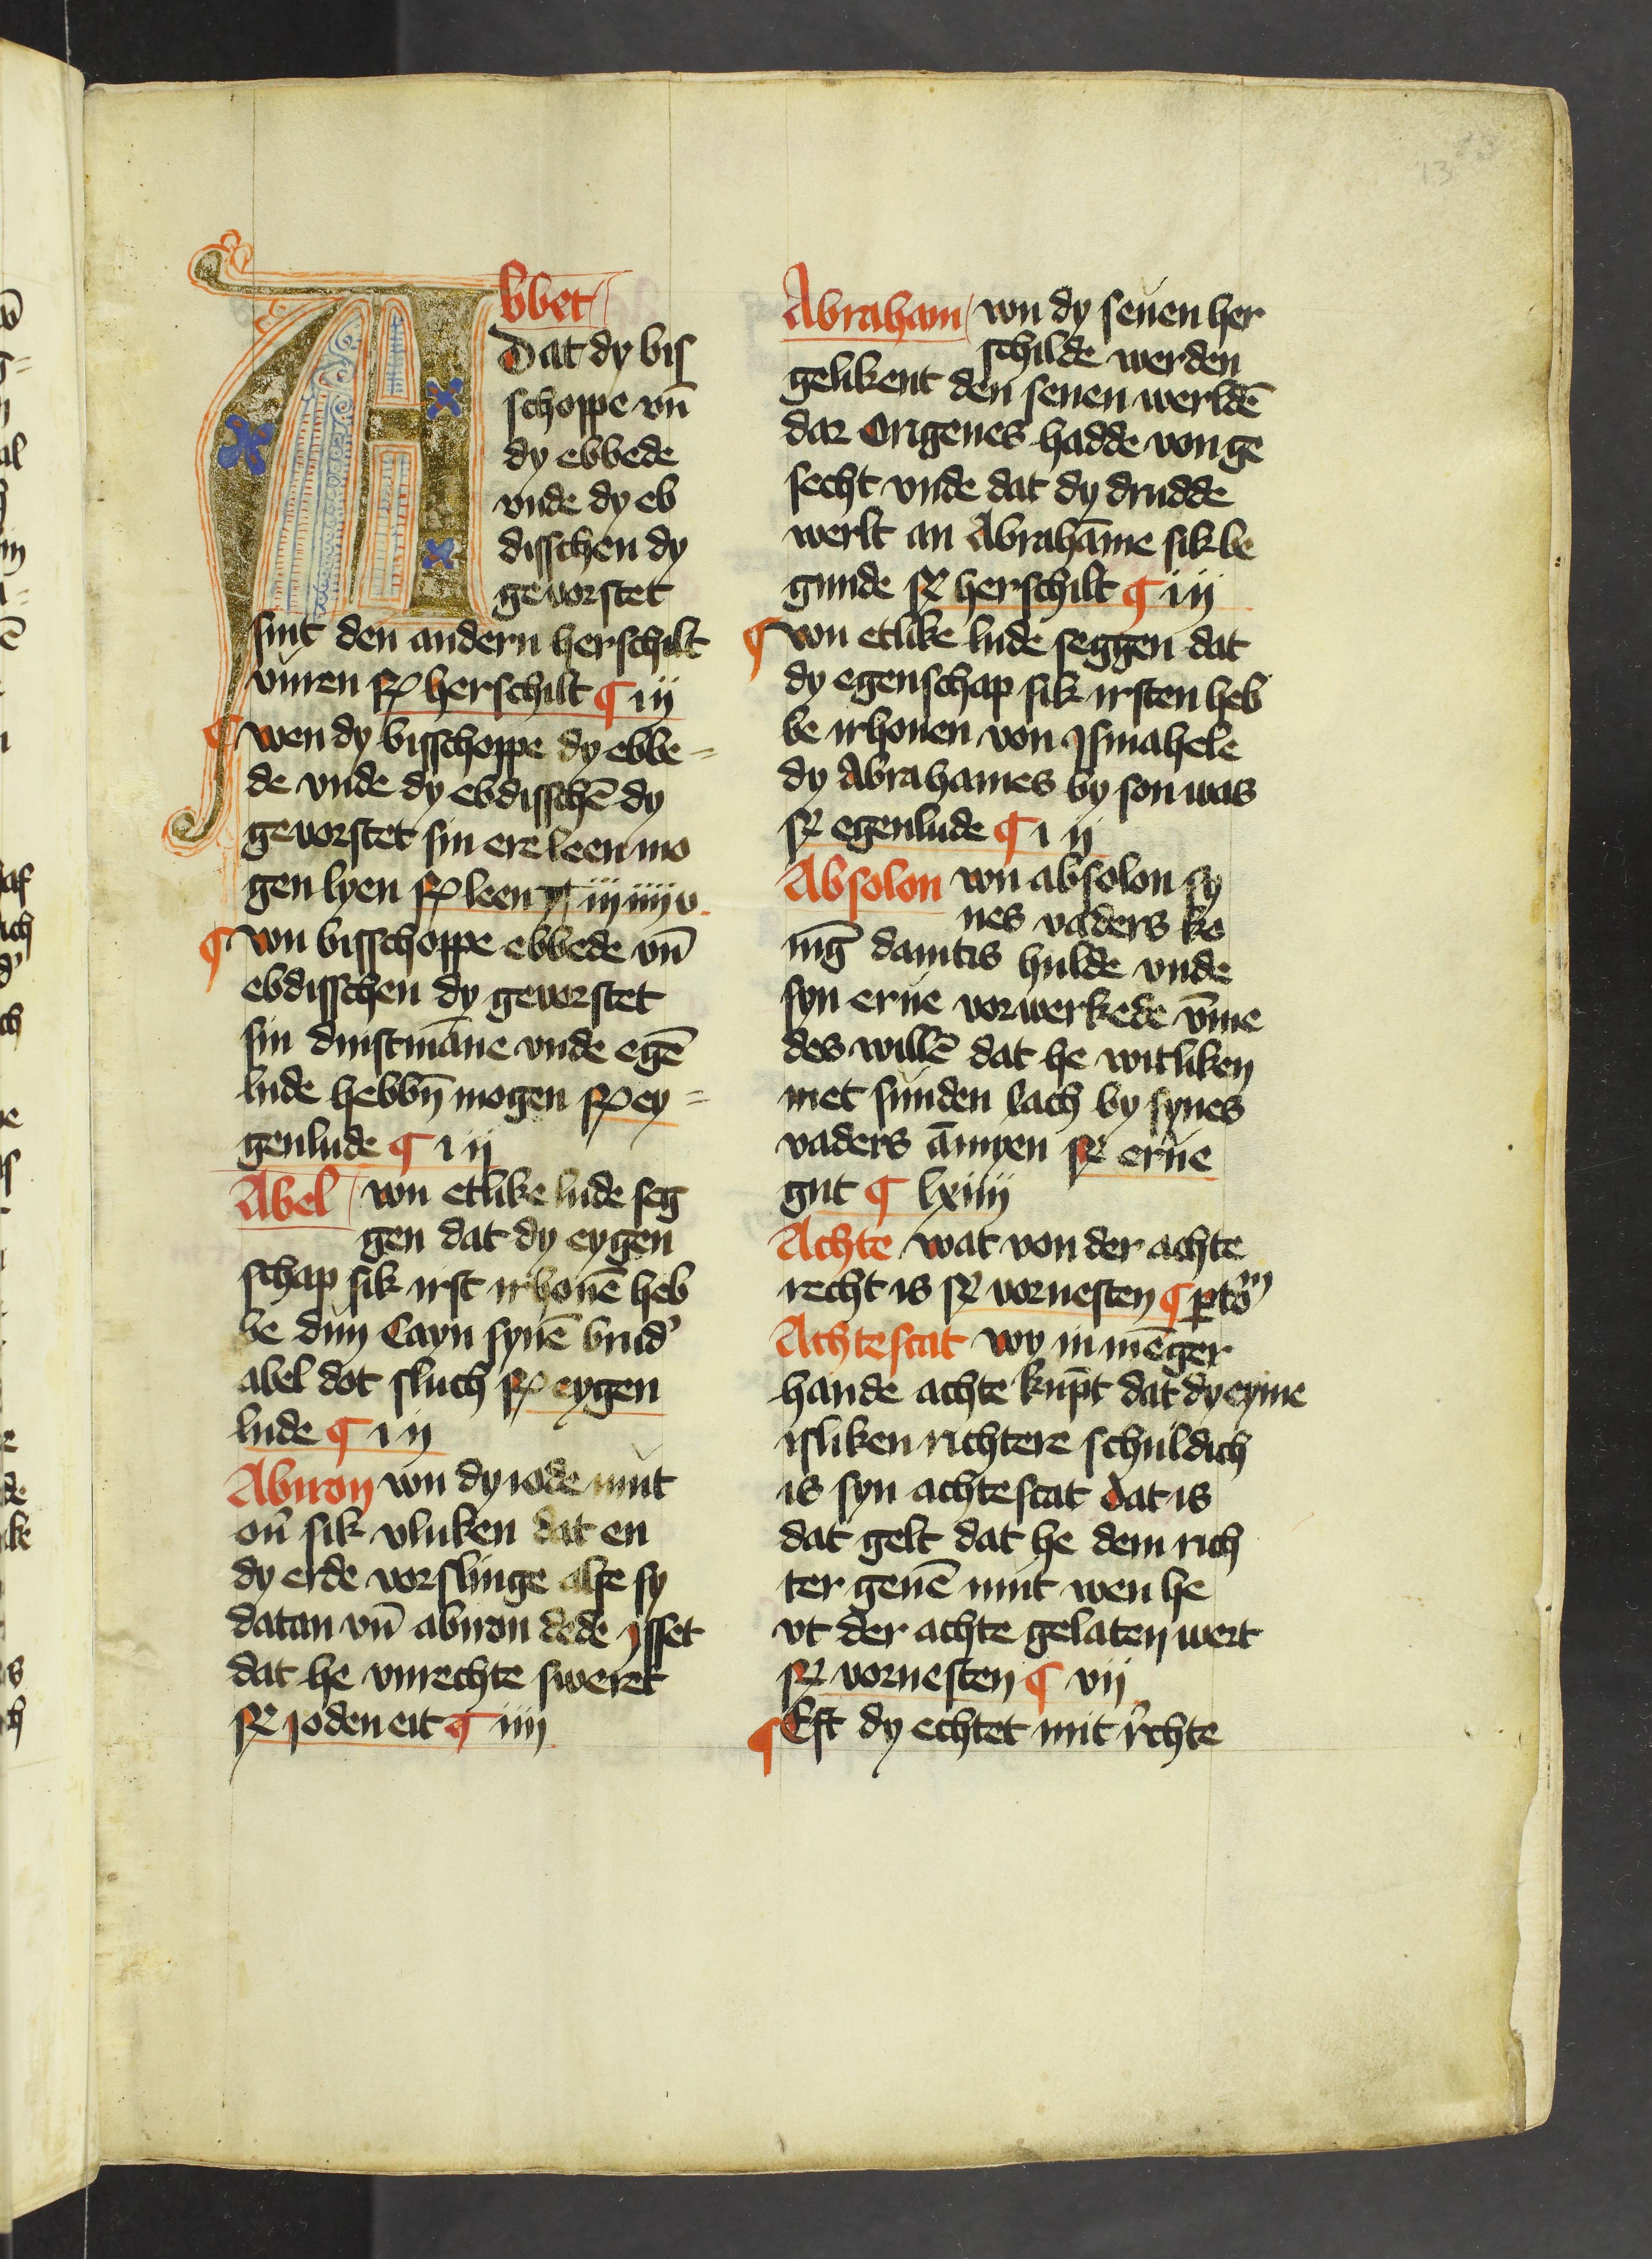 Abbet
Dat dy bis
schoppe vn̄
dy ebbede
vnde dy eb
disschen dy
gevorstet
sint den andern herschilt
vuren sꝝ herschilt ¶ iij
¶ wen dy bisschoppe dy ebbe=
de vnde dy ebdisschē dy
gevorstet sin ere leen mo
gen lyen sꝝ leen iij iiij v.
¶ wu bisschoppe ebbede vn̄
ebdisschen dy gevorstet
sin dinstmāne vnde egē
lude hebbn̄ mogen sꝝ ey=
genlude ¶ i ij
Abel wu etlike lude seg
gen dat dy eygen
schap sik irst irhouē heb
be dun Cayn synē brud'
abel dot sluch sꝝ eygen
lude ¶ i ij
Abiron wu dy iode mut
ouͤ sik vluken dat en
dy erde vorslinge alse sy
datan vn̄ abiron dede isset
dat he vnrechte sweret
sꝝ joden eit ¶ iiij
Abraham wu dy seuen her
schilde werden
gelikent den seuen werldē
dar Origenes hadde von ge
secht vnde dat dy drudde
werlt an Abrahāme sik be
gunde sꝝ herschilt ¶ i ij
¶ wu etlike lude seggen dat
dy egenschap sik irsten heb
be irhouen von Ismahele
dy Abrahames by son was
sꝝ egenlude ¶ i ij
Absolon wu absolon sy
nes vaders ko
nīg dauitis hulde vnde
syn erue vorwerkede vm̄e
des willē dat he witliken
met sunden lach by synes
vaders āmyen sꝝ erue
gut ¶ lxiiij
Achte wat von der achte
recht is sꝝ voruesten ¶ ꝑtoͫ
Achtescat wy in mēger
hande achte kūpt dat dy eyme
isliken richtere schuldich
is syn achtescat dat is
dat gelt dat he dem rich
ter geuē mut wen he
vt der achte gelaten wert
sꝝ voruesten ¶ vij
¶ Eft dy echtet mit r̄chte
13